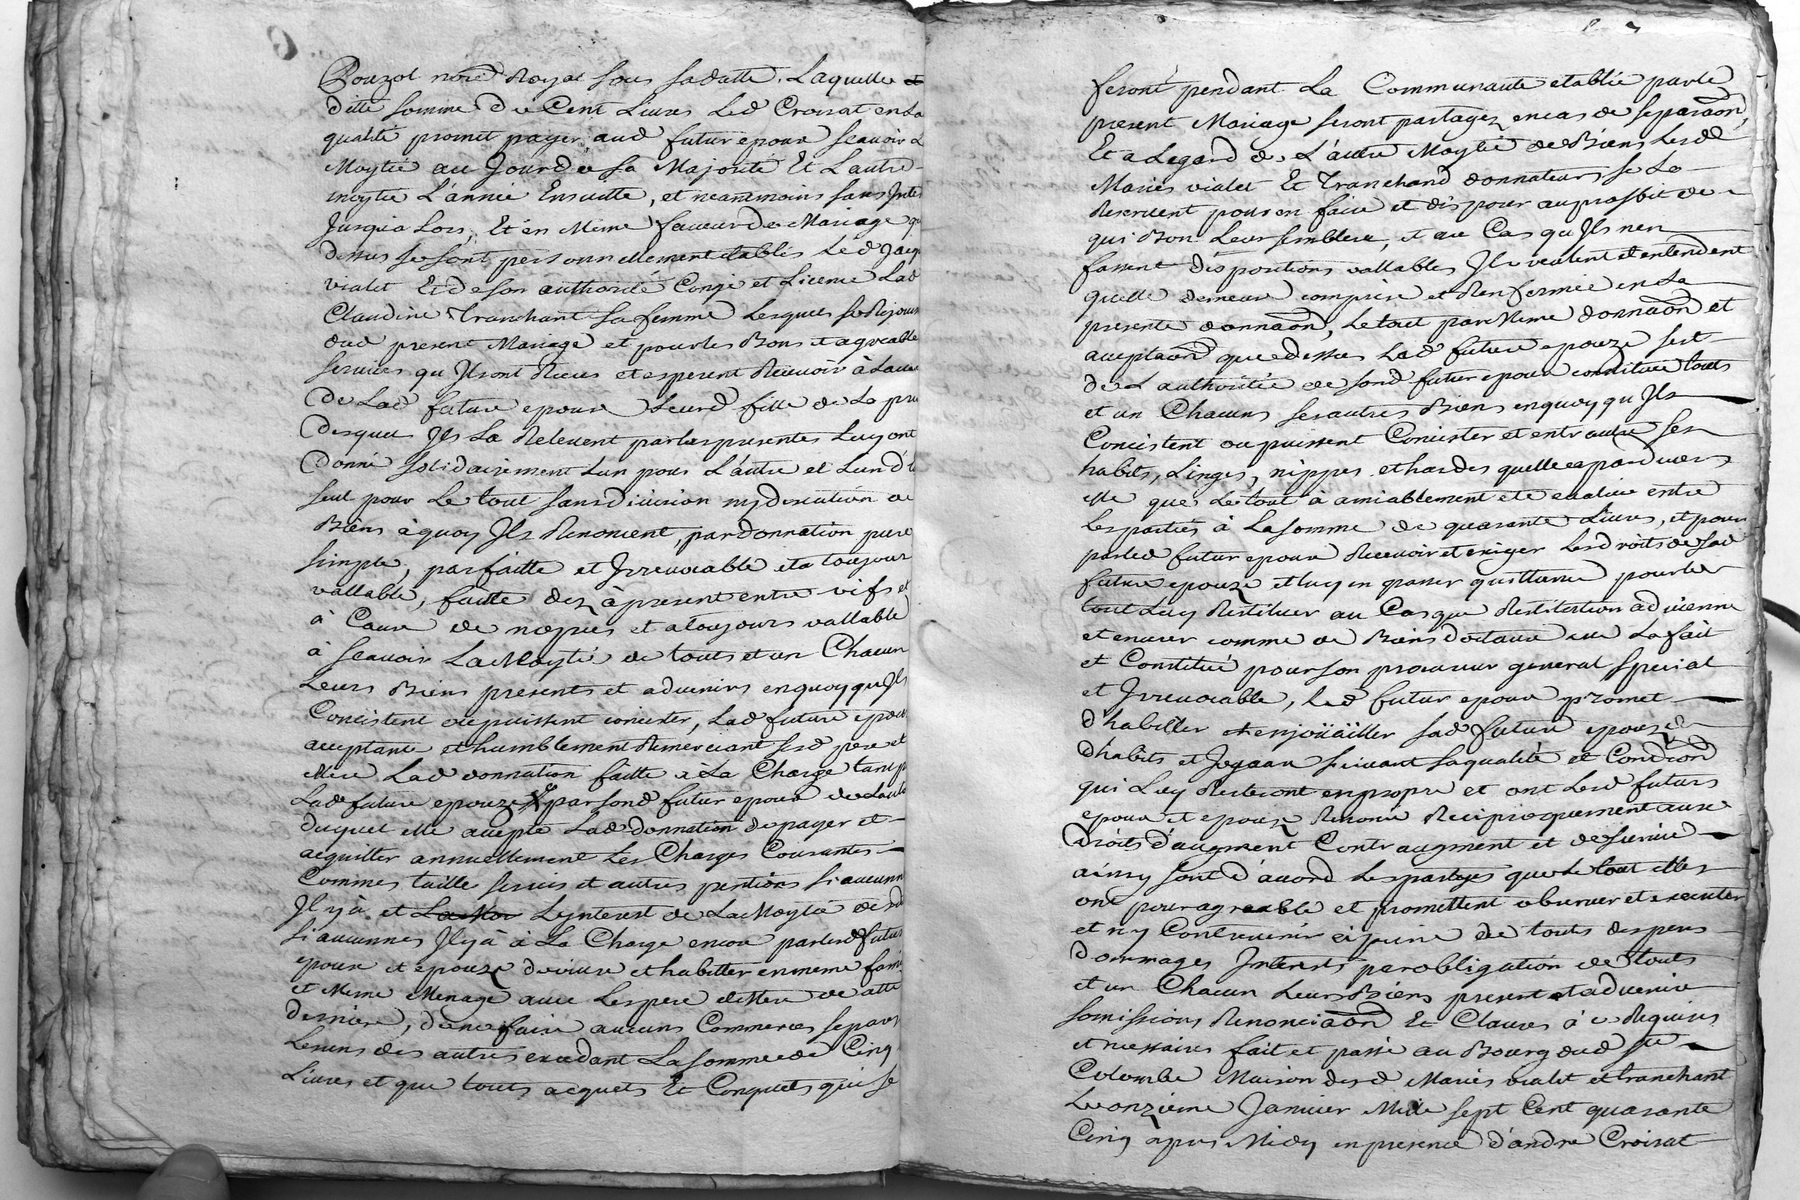 Pouzol no.re Royal sous sa datte, Laquelle
ditte somme de Cent Livres Led Croisat en sa
qualité promet payer aud futur epoux scavoir
Moytié au Jour de sa Majorité Et L'autre
moytié L'année Ensuitte, et neanmoins sans Inte
Jusqu'a Lors, Et en Même faveur de Mariage
dessus se sont personnellement etablis Led Jacq
vialet Et de son authorité Congé et Licence Lad
Claudine Tranchant sa femme Lesquels se Rejouis
dud present Mariage et pour les Bons et agreable
services qu'Ils ont Reçus et esperent Recevoir à L'aveni
de Lad future epouse Leurd fille de La pre
desquels Ils La Relevent par les presentes Luy ont
donné solidairement L'un pour L'autre et L'un d'
seul pour Le tout sans division ny discution de
Biens à quoy Ils Renoncent, par donnation pure
simple, parfaitte et Irrevocable et a toujours
vallable, faitte dez à present entre vifs et
à Cause de nopces et a toujours vallable
à scavoir La Moytié de touts et un Chacun
Leurs Biens presents et advenirs en quoy qu'Ils
Concistent ou puissent concister, Lad future epouse
acceptante et humblement Remerciant sesd pere et
Mere Lad donnation faitte à La Charge tant p
Lad future epouze par sond futur epoux de L'auto
duquel elle accepte Lad donnation de payer et
acquitter annuellement Les Charges Courantes
Commes taille servis et autres pentions si aucunne
Il y à et La Moi L'ynterest de La Moytié des
si aucunnes Il y à à La Charge encore par lesd futur
epoux et epouze de vivre et habitter en meme fami
et Meme Menage avec Les pere et Mere de cette
derniere, de ne faire aucuns Commerces separés
Les uns des autres excedant La somme de Cinq
Livres et que touts acquets Et Conquets qui se
feront pendant La Communauté etablie par le
present Mariage seront partagez en cas de separaon,
Et a L'egard de L'autre Moytié de Biens Lesd
Mariés vialet Et Tranchand donnateurs se La
Reservent pour en faire et disposer au proffit de
qui Bon Leur semblera, et au Cas qu'Ils n'en
fassent dispositions vallables Ils veulent et entendent
quelle demeure comprise et Renfermée en La
presente donnaon, Le tout par Meme donnaon et
acceptaon que dessus Lad future epouze s'est
de L'authorité de sond futur epoux constituée touts
et un Chacuns ses autres Biens en quoy qu'Ils
Concistent ou puissent Concister et entr'autre ses
habits, Linges, nippes et hardes quelle a pardevers
elle que Le tout à amiablement eté evalué entre
Les parties à La somme de quarante Livres, et pour
par led futur epoux Recevoir et exiger Les droits de sad
future epouze et luy en passer quittance pour les
tout Luy Restituer au Cas que Restitution advienne
et encore comme de Biens dotaux elle La fait
et Constitué pour son procureur general special
et Irrevocable, Led futur epoux promet
d'habiller et enjoüailler sad future epouze
d'habits et Joyaux suivant sa qualité et Condion
qui Luy Resteront en propre et ont Lesd futurs
epoux et epouze Renoncé Reciproquement aux
Droits d'augment Contraugment et de survie
ainsy sont d'acord Les parties que Le tout elles
ont pour agreable et promettent observer et executer
et n'y Contrevenir à peine de touts despens
Dommages Interets par obligation de touts
et un Chacun Leurs Biens present et advenir
somissions Renonciaon Et Clauses à ce Requises
et necessaires fait et passé au Bourg dud Ste
Colombe Maison desd Mariés vialet et tranchant
Le onzieme Janvier Mille sept Cent quarante
Cinq apres Midy en presence d'andré Croisat